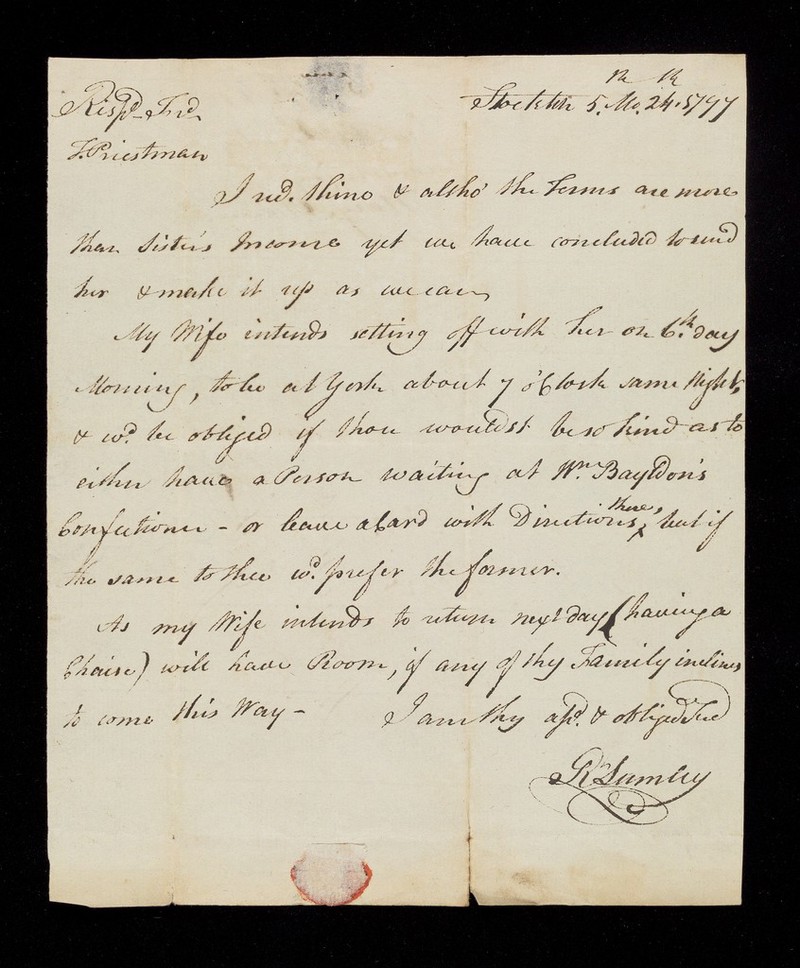 Stockton 5.th Mo. 24.th 1797
Resp.d Fr.d
T. Priestman
I rec.d thine & altho' the Terms are more
than Sister's Income yet we have concluded to send
her & make it up as we can,
My Wife intends setting off with her on 6.th day
Morning, to be at York about 7 o'Clock same Night,
& w.d be obliged if thou wouldst be so kind as to
either have a Person waiting at Wm. Bayldon's
Confectioner - or leave a Card with Directions there, but if
the same to thee w.d prefer the former.
As my Wife intends to return next day (having a
Chaise) will have Room, if any of thy Family inclines
to come this Way -
I am thy aff.d & obliged Fr.d
R. Lumley